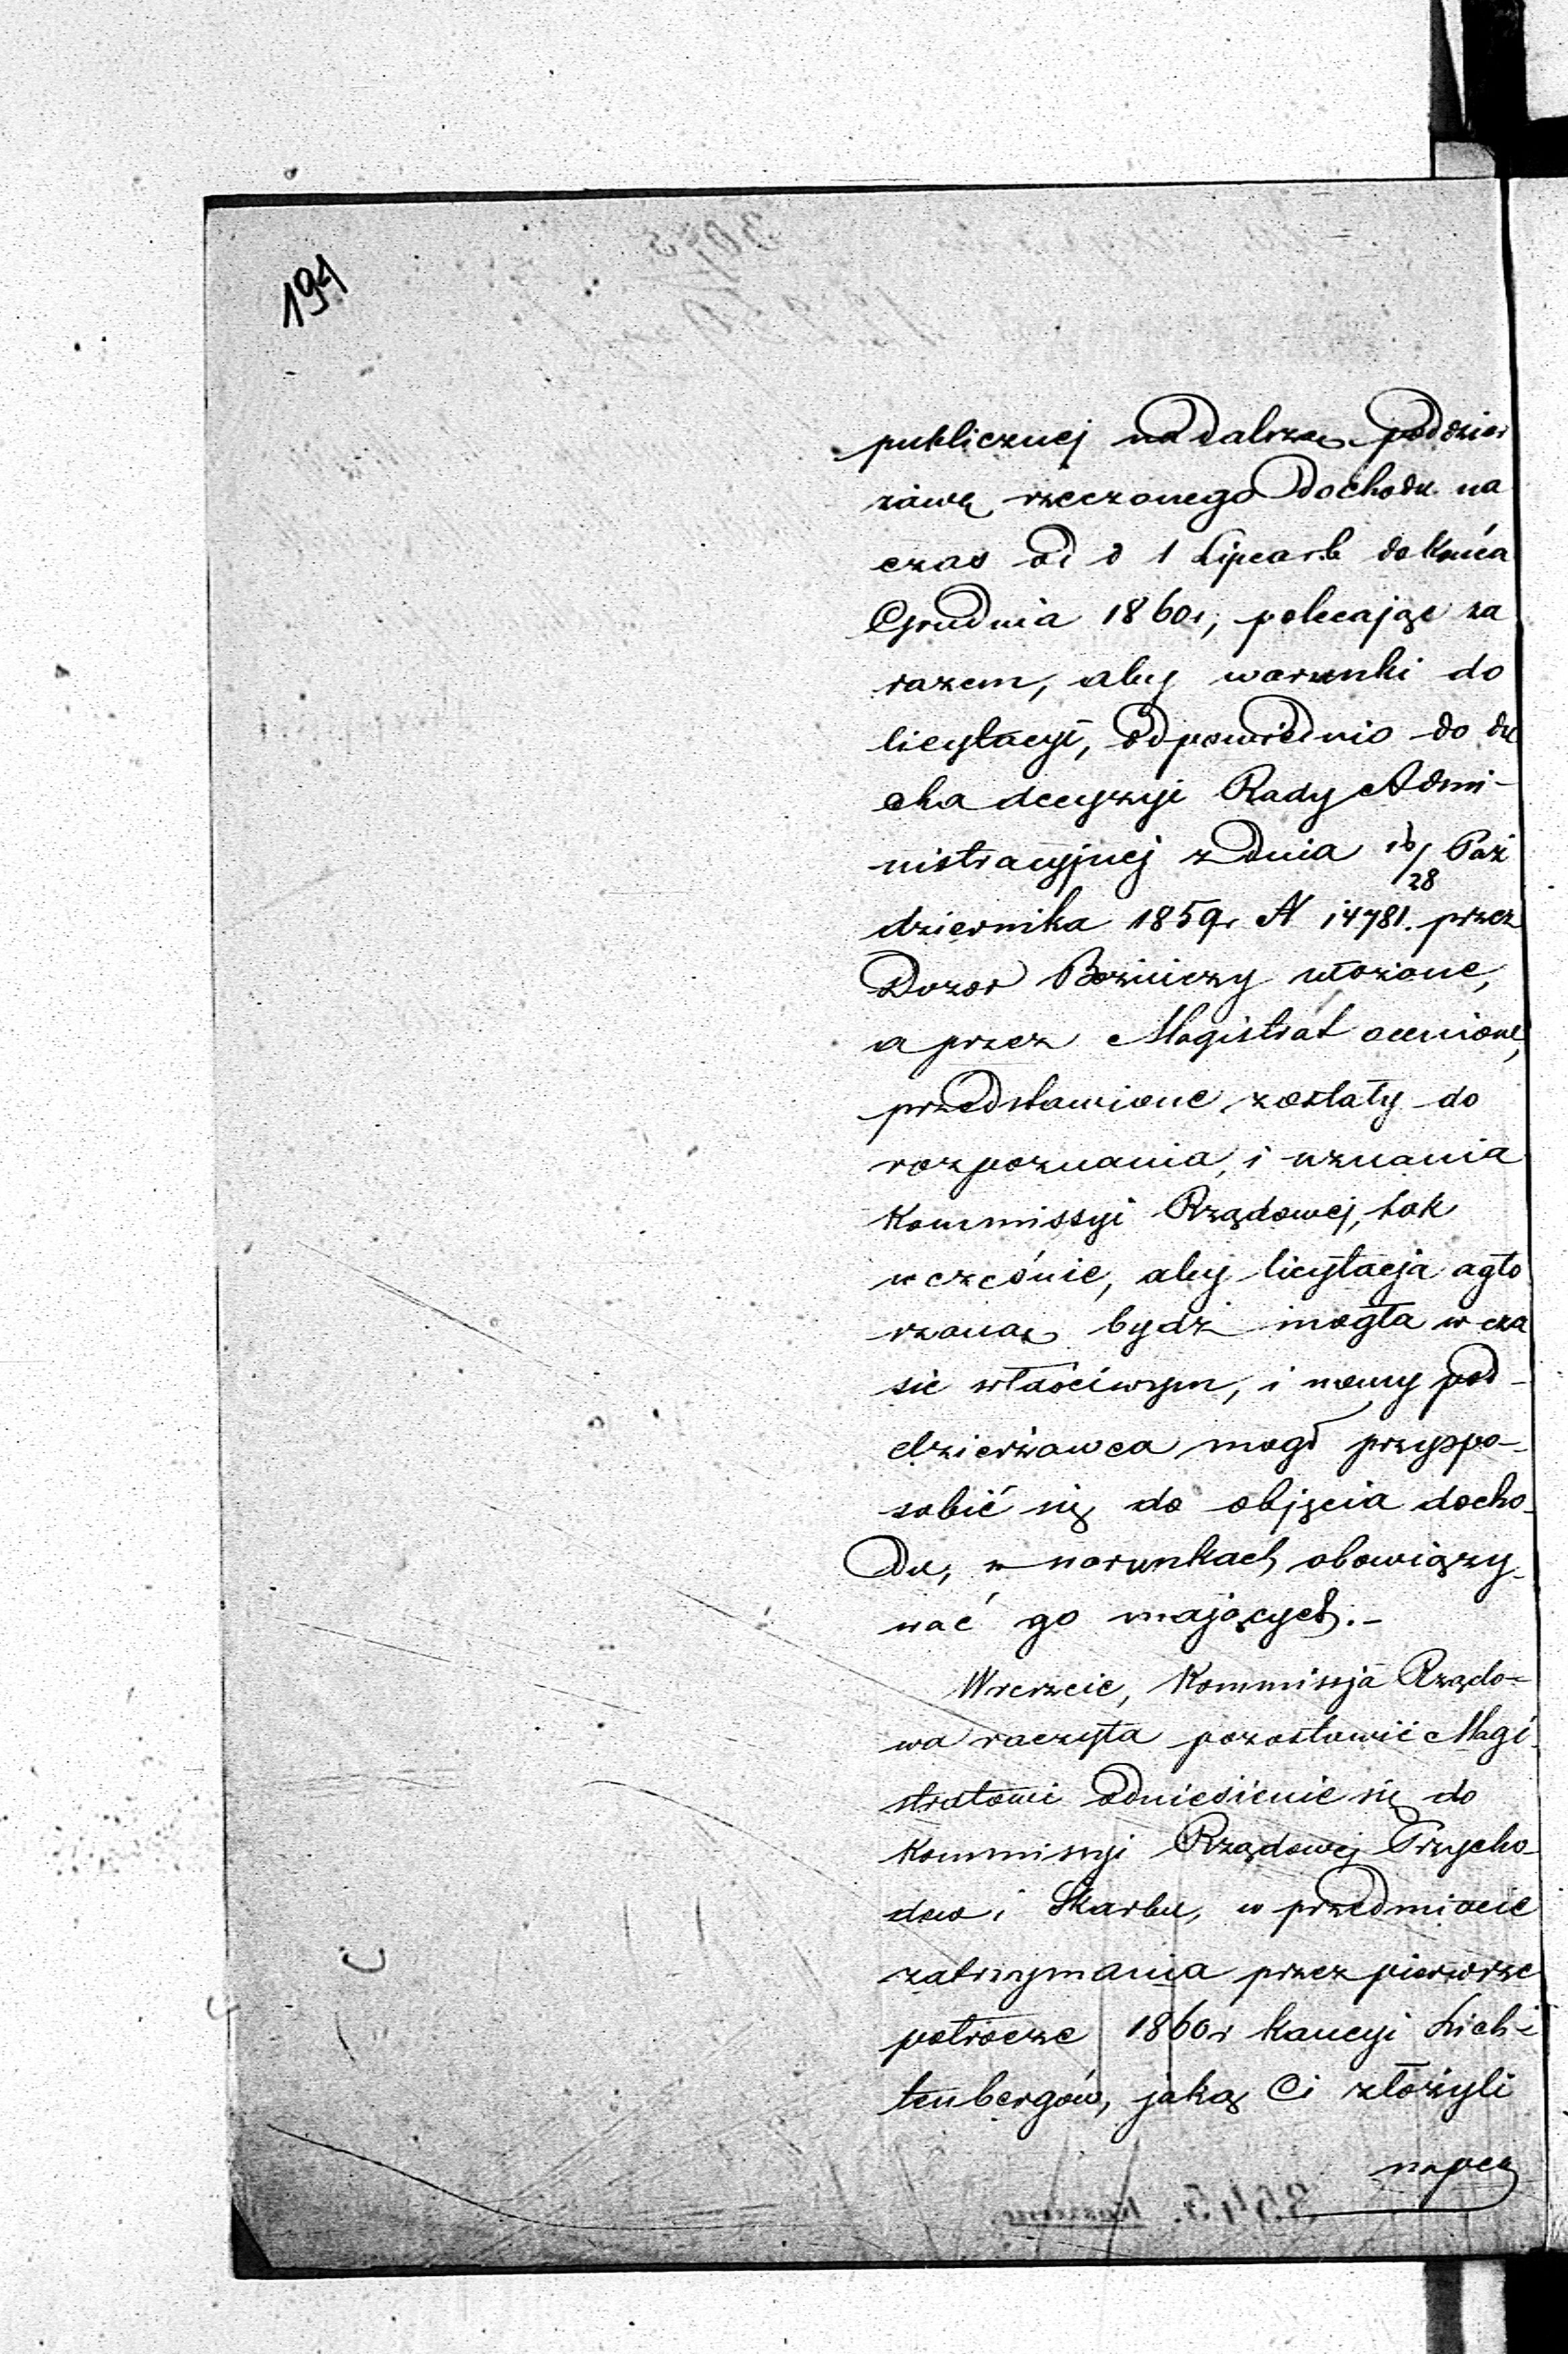 194
publicznej na dalszą poddzier
żawę rzeczonego Dochodu na
czas od d 1 Lipca rb do końca
Grudnia 1860r, polecając za
razem, aby warunki do
licytacyi, odpowiednio do du
cha decyzyi Rady Admi-
nistracyjnej z Dnia 16/28 Paź
dziernika 1859r N 14781. przez
Dozor Bożniczy ułożone,
a przez Magistrat ocenione,
przedstawione zostały do
rozpoznania, i uznania
Kommissyi Rządowej, tak
wcześnie, aby licytacja ogło
szoną bydź mogła w cza
sie właściwym, i nowy pod-
dzierżawca mogł przyspo-
sobić się do objęcia docho-
du, w warunkach obowiązy-
wać go mających.-
Wreszcie, Kommissja Rządo-
wa raczyła pozostawić Magi-
stratowi odniesienie się do
Kommissyi Rządowej Przycho-
dow i Skarbu, w przedmiocie
zatrzymania przez pierwsze
połrocze 1860r kaucyi Lich-
tenbergów, jaką Ci złożyli